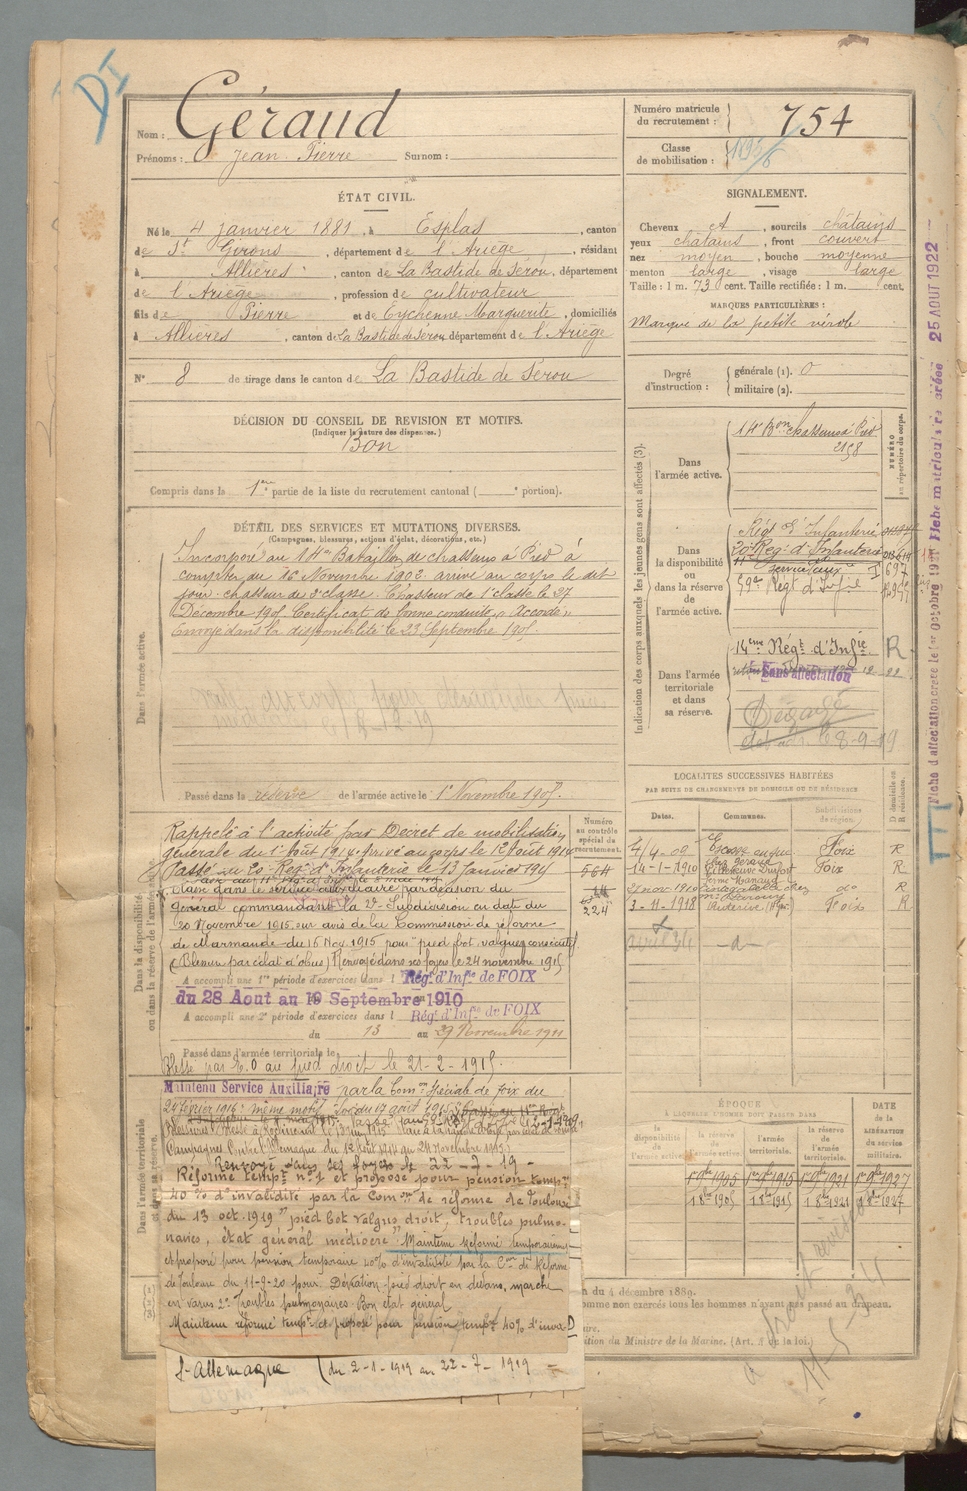 DI
Nom : Géraud
Prénoms : Jean Pierre Surnom :
Numéro matricule du recrutement : 754
Classe de mobilisation :
ÉTAT CIVIL.
Né le 4 janvier 1881, à Esplas, canton
de St Girons, département de l'Ariège, résidant
à Allières, canton de La Bastide de Sérou, département
de l'Ariège, profession de cultivateur
fils de Pierre et de Eychenne Marguerite, domiciliés
à Allières, canton de La Bastide de Sérou département de l'Ariège
N° 8 de tirage dans le canton de La Bastide de Serou
SIGNALEMENT.
Cheveux et, sourcils châtains
yeux châtains, front couvert
nez moyen, bouche moyenne
menton large, visage large
Taille : 1 m. 73 cent. Taille rectifiée : 1 m. cent.
MARQUES PARTICULIÈRES :
Marque de la petite vérole
Degré d'instruction : générale (1). 0
militaire (2).
DÉCISION DU CONSEIL DE REVISION ET MOTIFS.
(Indiquer la nature des dispenses.)
Bon
Compris dans la 1ere partie de la liste du recrutement cantonal ( e portion).
DÉTAIL DES SERVICES ET MUTATIONS DIVERSES.
(Campagnes, blessures, actions d'éclat, décorations, etc.)
Dans l'armée active.
Incorporé au 14e Bataillon de chasseurs à Pied à
compter du 16 Novembre 1902 arrivé au corps le dit
jour chasseur de 2e classe. Chasseur de 1e classe le 27
Décembre 1905 Certificat de bonne conduite "Accordé"
Envoyé dans la disponibilité le 23 Septembre 1905.
Passé dans la réserve de l'armée active le 1er Novembre 1905.
Indication des corps auxquels les jeunes gens sont affectés (3).
NUMÉRO au répertoire du corps.
Dans l'armée active.
14e Bon chasseurs à Pied
2158
Dans la disponibilité ou dans la réserve de l'armée active.
Régt d'Infanterie
20e Régt d'Infanterie
I 697
59e Régt d'Infie
Dans l'armée territoriale et dans sa réserve.
14eme Régt d'Infie R
Sans affectation
Dégagé
8-9-19
Fiche d'affectation créée le 1er Octobre 1921 Fiche matriculaire créée 25 AOUT 1922
Dans la disponibilité ou dans la réserve de l'armée active.
Numéro au contrôle spécial du recrutement.
564
224
Rappelé à l'activité par Décret de mobilisation
générale du 1er août 1914. Arrivé au corps le 12 Août 1914
Passé au 20e Régt d'Infanterie le 13 Janvier 1915
Classé dans le service auxiliaire par décision du
général commandant la 2e Subdivision en date du
20 Novembre 1915 sur avis de la Commission de réforme
de Marmande du 15 Nov. 1915 pour "pied bot valgus consécutif
(Blessure par éclat d'obus) Renvoyé dans ses foyers le 24 novembre 1915
A accompli une 1re période d'exercices dans l Régt d'Infie de FOIX
du 28 Aout au 19 Septembre 1910
A accompli une 2e période d'exercices dans l Régt d'Infie de FOIX
du 13 au 29 Novembre 1911
Passé dans l'armée territoriale le
Blessé par E.O au pied droit le 21-2-1915.
LOCALITÉS SUCCESSIVES HABITÉES
PAR SUITE DE CHANGEMENTS DE DOMICILE OU DE RÉSIDENCE
Dates. Communes. Subdivisions de région. D domicile ou R résidence.
4/4-09 Foix R
14-1-1910 Foix R
21 nov. 1910 do R
3-11-1918 Foix R
Dans l'armée territoriale et dans sa réserve.
Maintenu Service Auxiliaire par la Comon Spéciale de Foix du
24 février 1916 même motif. Loi du 17 août 1915
Campagnes Contre l'Allemagne du 12 août 1914 au 24 Novembre 1915
Renvoyé dans ses foyers le 22-7-19-
Réformé tempre n°1 et proposé pour pension tempre
40% d'invalidité par la Comon de réforme de Toulouse
du 13 oct. 1919 "pied bot valgus droit, troubles pulmo-
naires, état général médiocre". Maintenu Réformé temporaire
et proposé pour pension temporaire 40% d'invalidité par la Con de Réforme
de Toulouse du 11-9-20 pour. Déviation pied droit en dedans, marche
en varus 2° Troubles pulmonaires. Bon état général
Maintenu réformé tempre et proposé pour pension tempre 40% d'inva-
l'Allemagne (du 2-1-1919 au 22-7-1919
ÉPOQUE
À LAQUELLE L'HOMME DOIT PASSER DANS
la disponibilité de l'armée active. la réserve de l'armée active. l'armée territoriale. la réserve de l'armée territoriale. DATE de la LIBÉRATION du service militaire.
1er 9bre 1905 1er 9bre 1915 1er 9bre 1921 1er 9bre 1927
1 8bre 1905 1 8bre 1915 1 8bre 1921 1 8bre 1927
n du 4 décembre 1889.
omme non exercés tous les hommes n'ayant pas passé au drapeau.
ition du Ministre de la Marine. (Art. de la loi.)
11-5-34